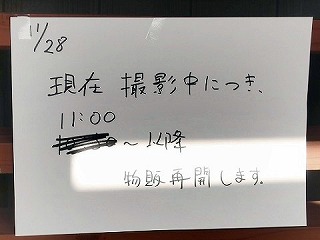 11/28
現在 撮影中につき、
11:00
～以降
物販再開します。